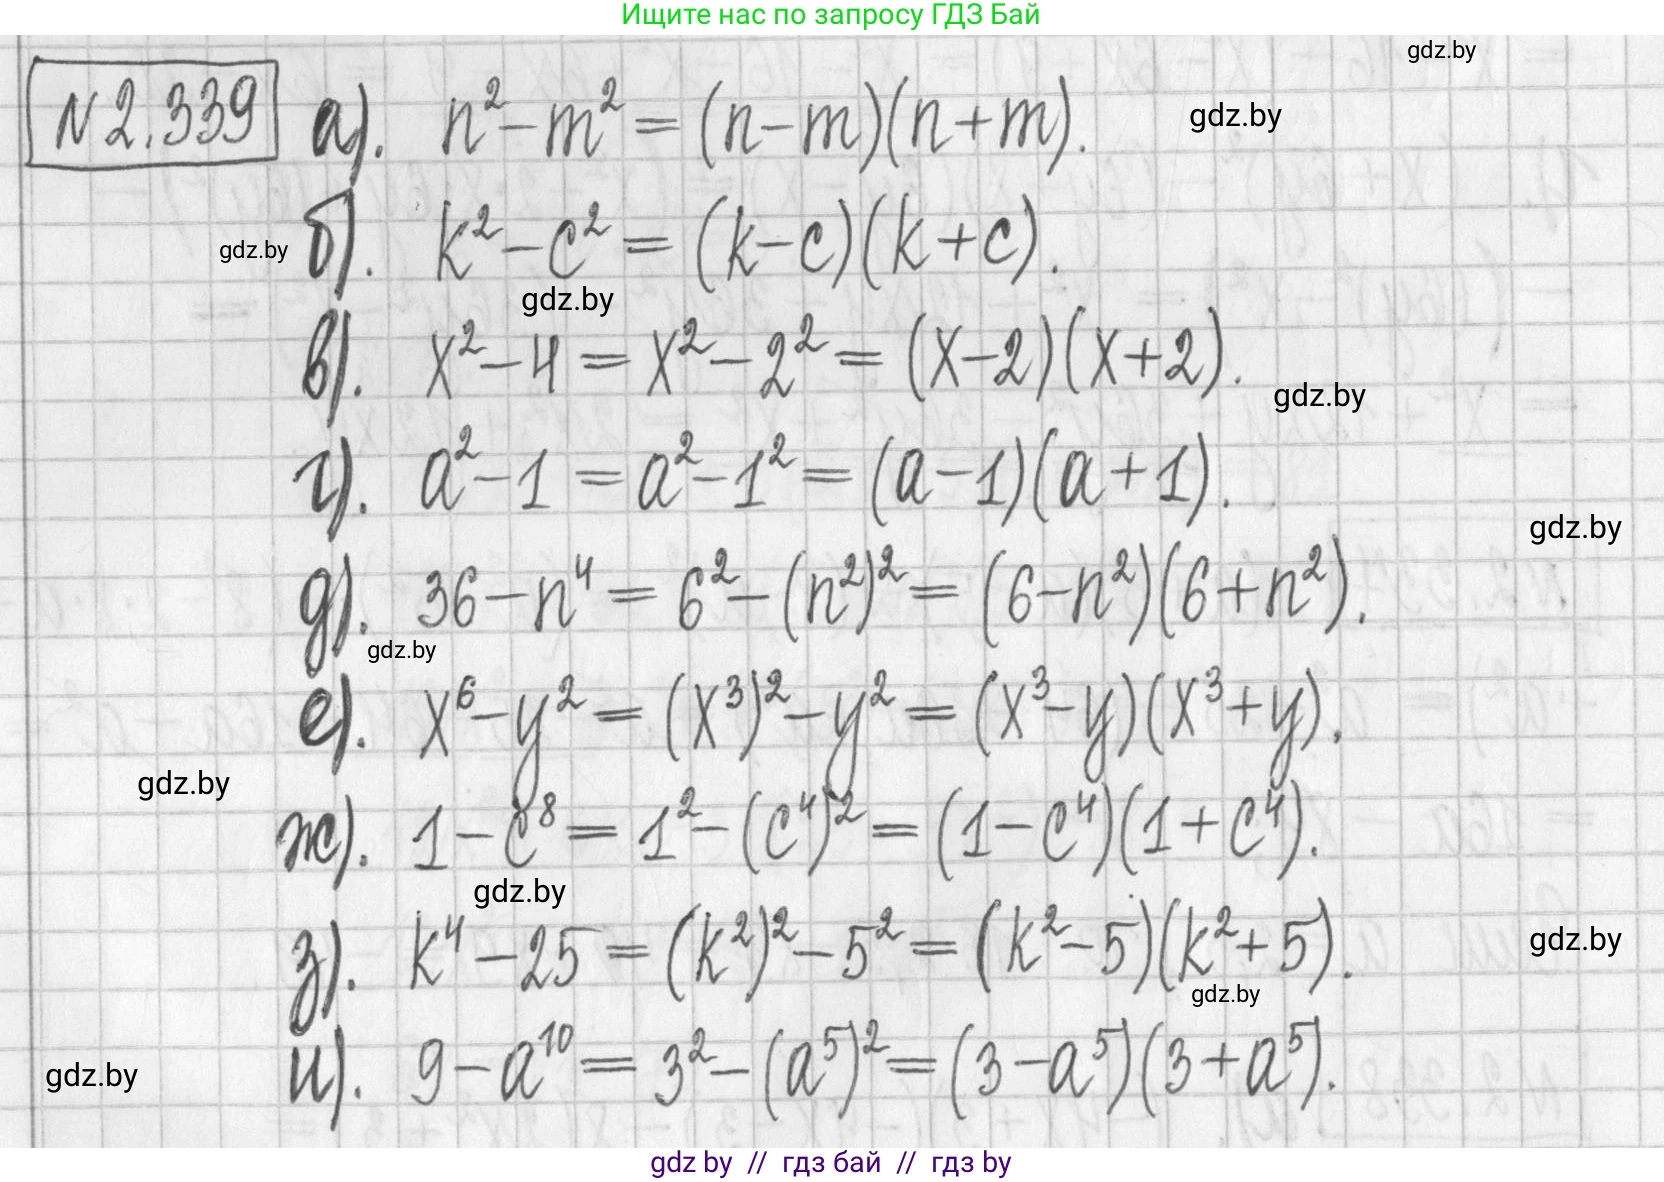 Ищите нас по запросу ГДЗ Бай
gdz.by
№ 2.339 а). n² − m² = (n − m)(n + m).
gdz.by
б). k² − c² = (k − c)(k + c).
gdz.by
gdz.by
в). x² − 4 = x² − 2² = (x − 2)(x + 2).
gdz.by
г). a² − 1 = a² − 1² = (a − 1)(a + 1).
gdz.by
д). 36 − n⁴ = 6² − (n²)² = (6 − n²)(6 + n²).
gdz.by
е). x⁶ − y² = (x³)² − y² = (x³ − y)(x³ + y).
gdz.by
ж). 1 − c⁸ = 1² − (c⁴)² = (1 − c⁴)(1 + c⁴).
gdz.by
з). k⁴ − 25 = (k²)² − 5² = (k² − 5)(k² + 5).
gdz.by
gdz.by
и). 9 − a¹⁰ = 3² − (a⁵)² = (3 − a⁵)(3 + a⁵).
gdz.by
gdz by // гдз бай // гдз by